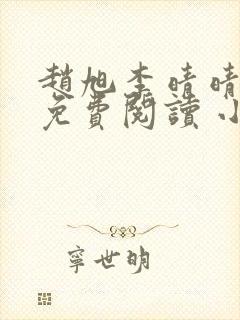 趙旭李晴晴
免費閱讀小
寧世明